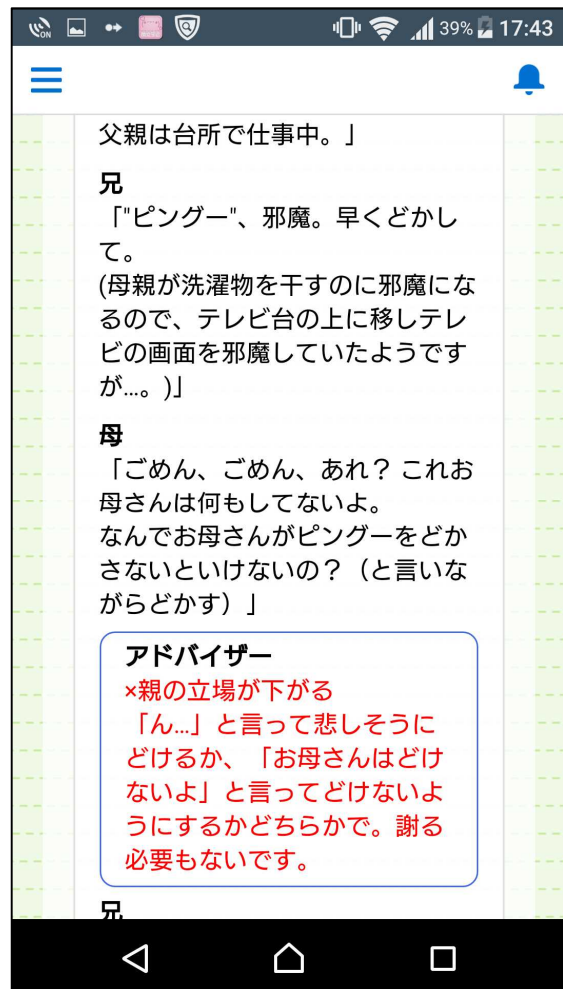 39% 17:43
父親は台所で仕事中。」
兄
「"ピングー"、邪魔。早くどかし
て。
(母親が洗濯物を干すのに邪魔にな
るので、テレビ台の上に移しテレ
ビの画面を邪魔していたようです
が…。)」
母
「ごめん、ごめん、あれ？ これお
母さんは何もしてないよ。
なんでお母さんがピングーをどか
さないといけないの？（と言いな
がらどかす）」
アドバイザー
×親の立場が下がる
「ん…」と言って悲しそうに
どけるか、「お母さんはどけ
ないよ」と言ってどけないよ
うにするかどちらかで。謝る
必要もないです。
兄